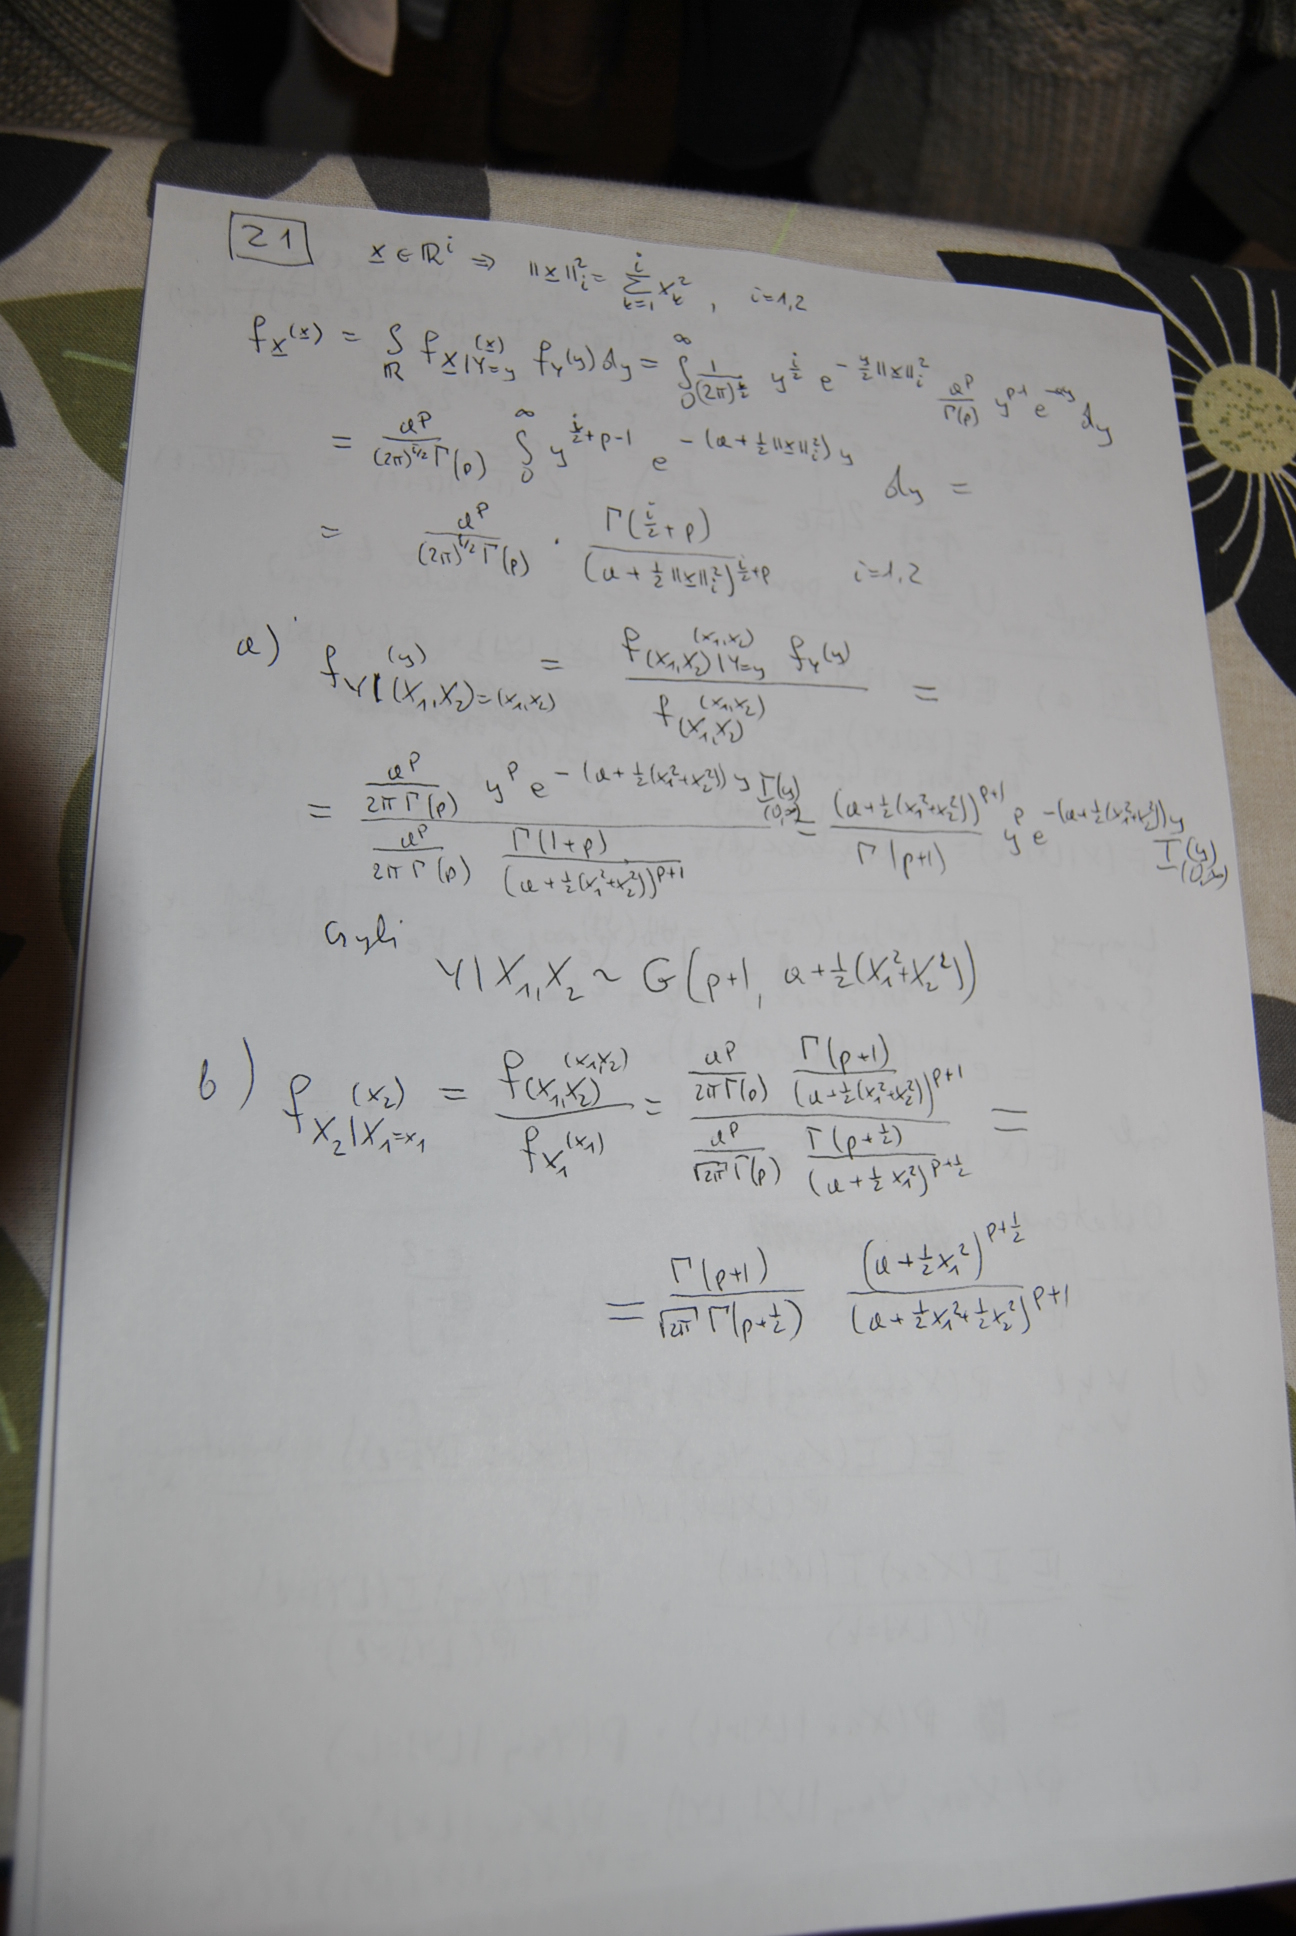 21 x ∈ ℝ^i ⇒ ||x||_i^2 = Σ_{k=1}^{i} x_k^2 , i=1,2
f_X(x) = ∫_ℝ f_{X|Y=y}(x) f_Y(y) dy = ∫_0^∞ 1/(2π)^{i/2} y^{i/2} e^{-y/2 ||x||_i^2} a^p/Γ(p) y^{p-1} e^{-ay} dy
= a^p/((2π)^{i/2} Γ(p)) ∫_0^∞ y^{i/2+p-1} e^{-(a+1/2||x||_i^2) y} dy =
= a^p/((2π)^{i/2} Γ(p)) · Γ(i/2+p)/(a+1/2||x||_i^2)^{i/2+p} i=1,2
a) f_{Y|(X_1,X_2)=(x_1,x_2)}(y) = f_{(X_1,X_2)|Y=y}(x_1,x_2) f_Y(y) / f_{(X_1,X_2)}(x_1,x_2) =
= [a^p/(2πΓ(p)) y^p e^{-(a+1/2(x_1^2+x_2^2)) y} I_{(0,∞)}(y)] / [a^p/(2πΓ(p)) Γ(1+p)/(a+1/2(x_1^2+x_2^2))^{p+1}] = (a+1/2(x_1^2+x_2^2))^{p+1}/Γ(p+1) y^p e^{-(a+1/2(x_1^2+x_2^2))y} I_{(0,∞)}(y)
Czyli
Y|X_1,X_2 ~ G(p+1, a+1/2(X_1^2+X_2^2))
b) f_{X_2|X_1=x_1}(x_2) = f_{(X_1,X_2)}(x_1,x_2) / f_{X_1}(x_1) = [a^p/(2πΓ(p)) Γ(p+1)/(a+1/2(x_1^2+x_2^2))^{p+1}] / [a^p/(√2π Γ(p)) Γ(p+1/2)/(a+1/2 x_1^2)^{p+1/2}] =
= Γ(p+1)/(√2π Γ(p+1/2)) (a+1/2 x_1^2)^{p+1/2}/(a+1/2 x_1^2+1/2 x_2^2)^{p+1}